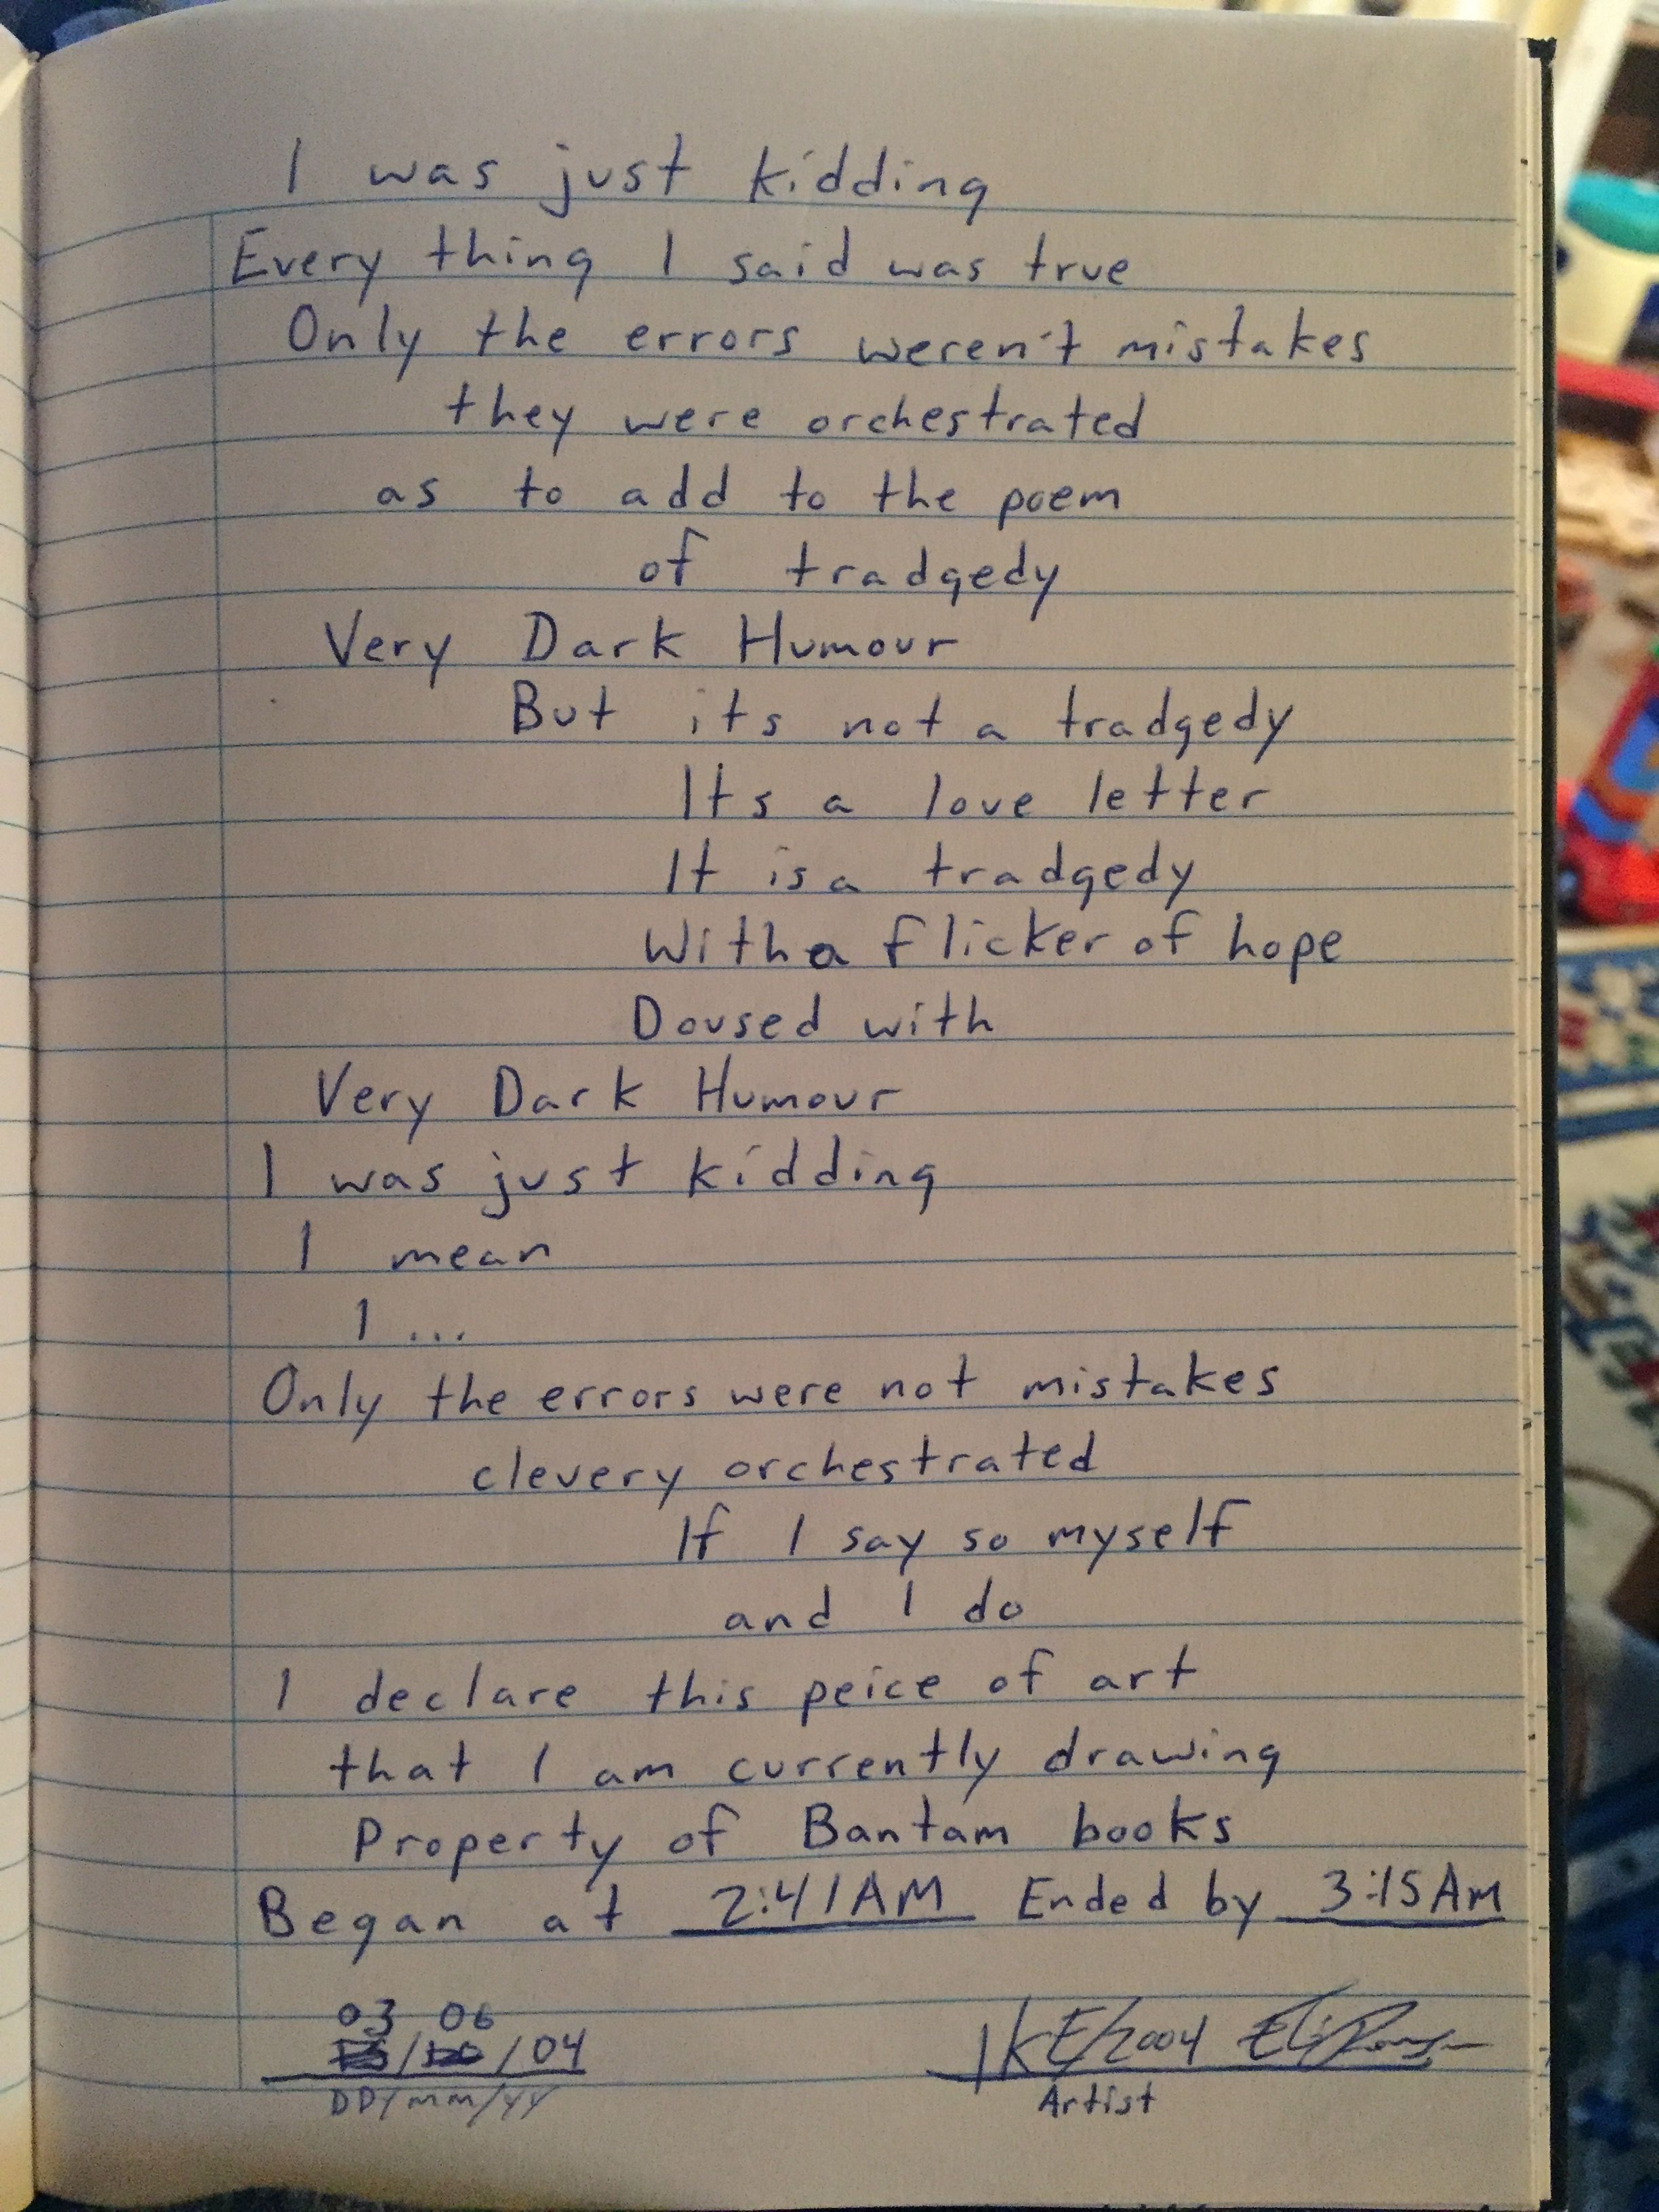 I was just kidding
Every thing I said was true
Only the errors weren't mistakes
they were orchestrated
as to add to the poem
of tradgedy
Very Dark Humour
But its not a tradgedy
Its a love letter
It is a tradgedy
With a flicker of hope
Doused with
Very Dark Humour
I was just kidding
I mean
I ...
Only the errors were not mistakes
clevery orchestrated
If I say so myself
and I do
I declare this peice of art
that I am currently drawing
Property of Bantam books
Began at 2:41AM Ended by 3:15AM
03 06
/ / 04
DD/mm/yy
2004
Artist